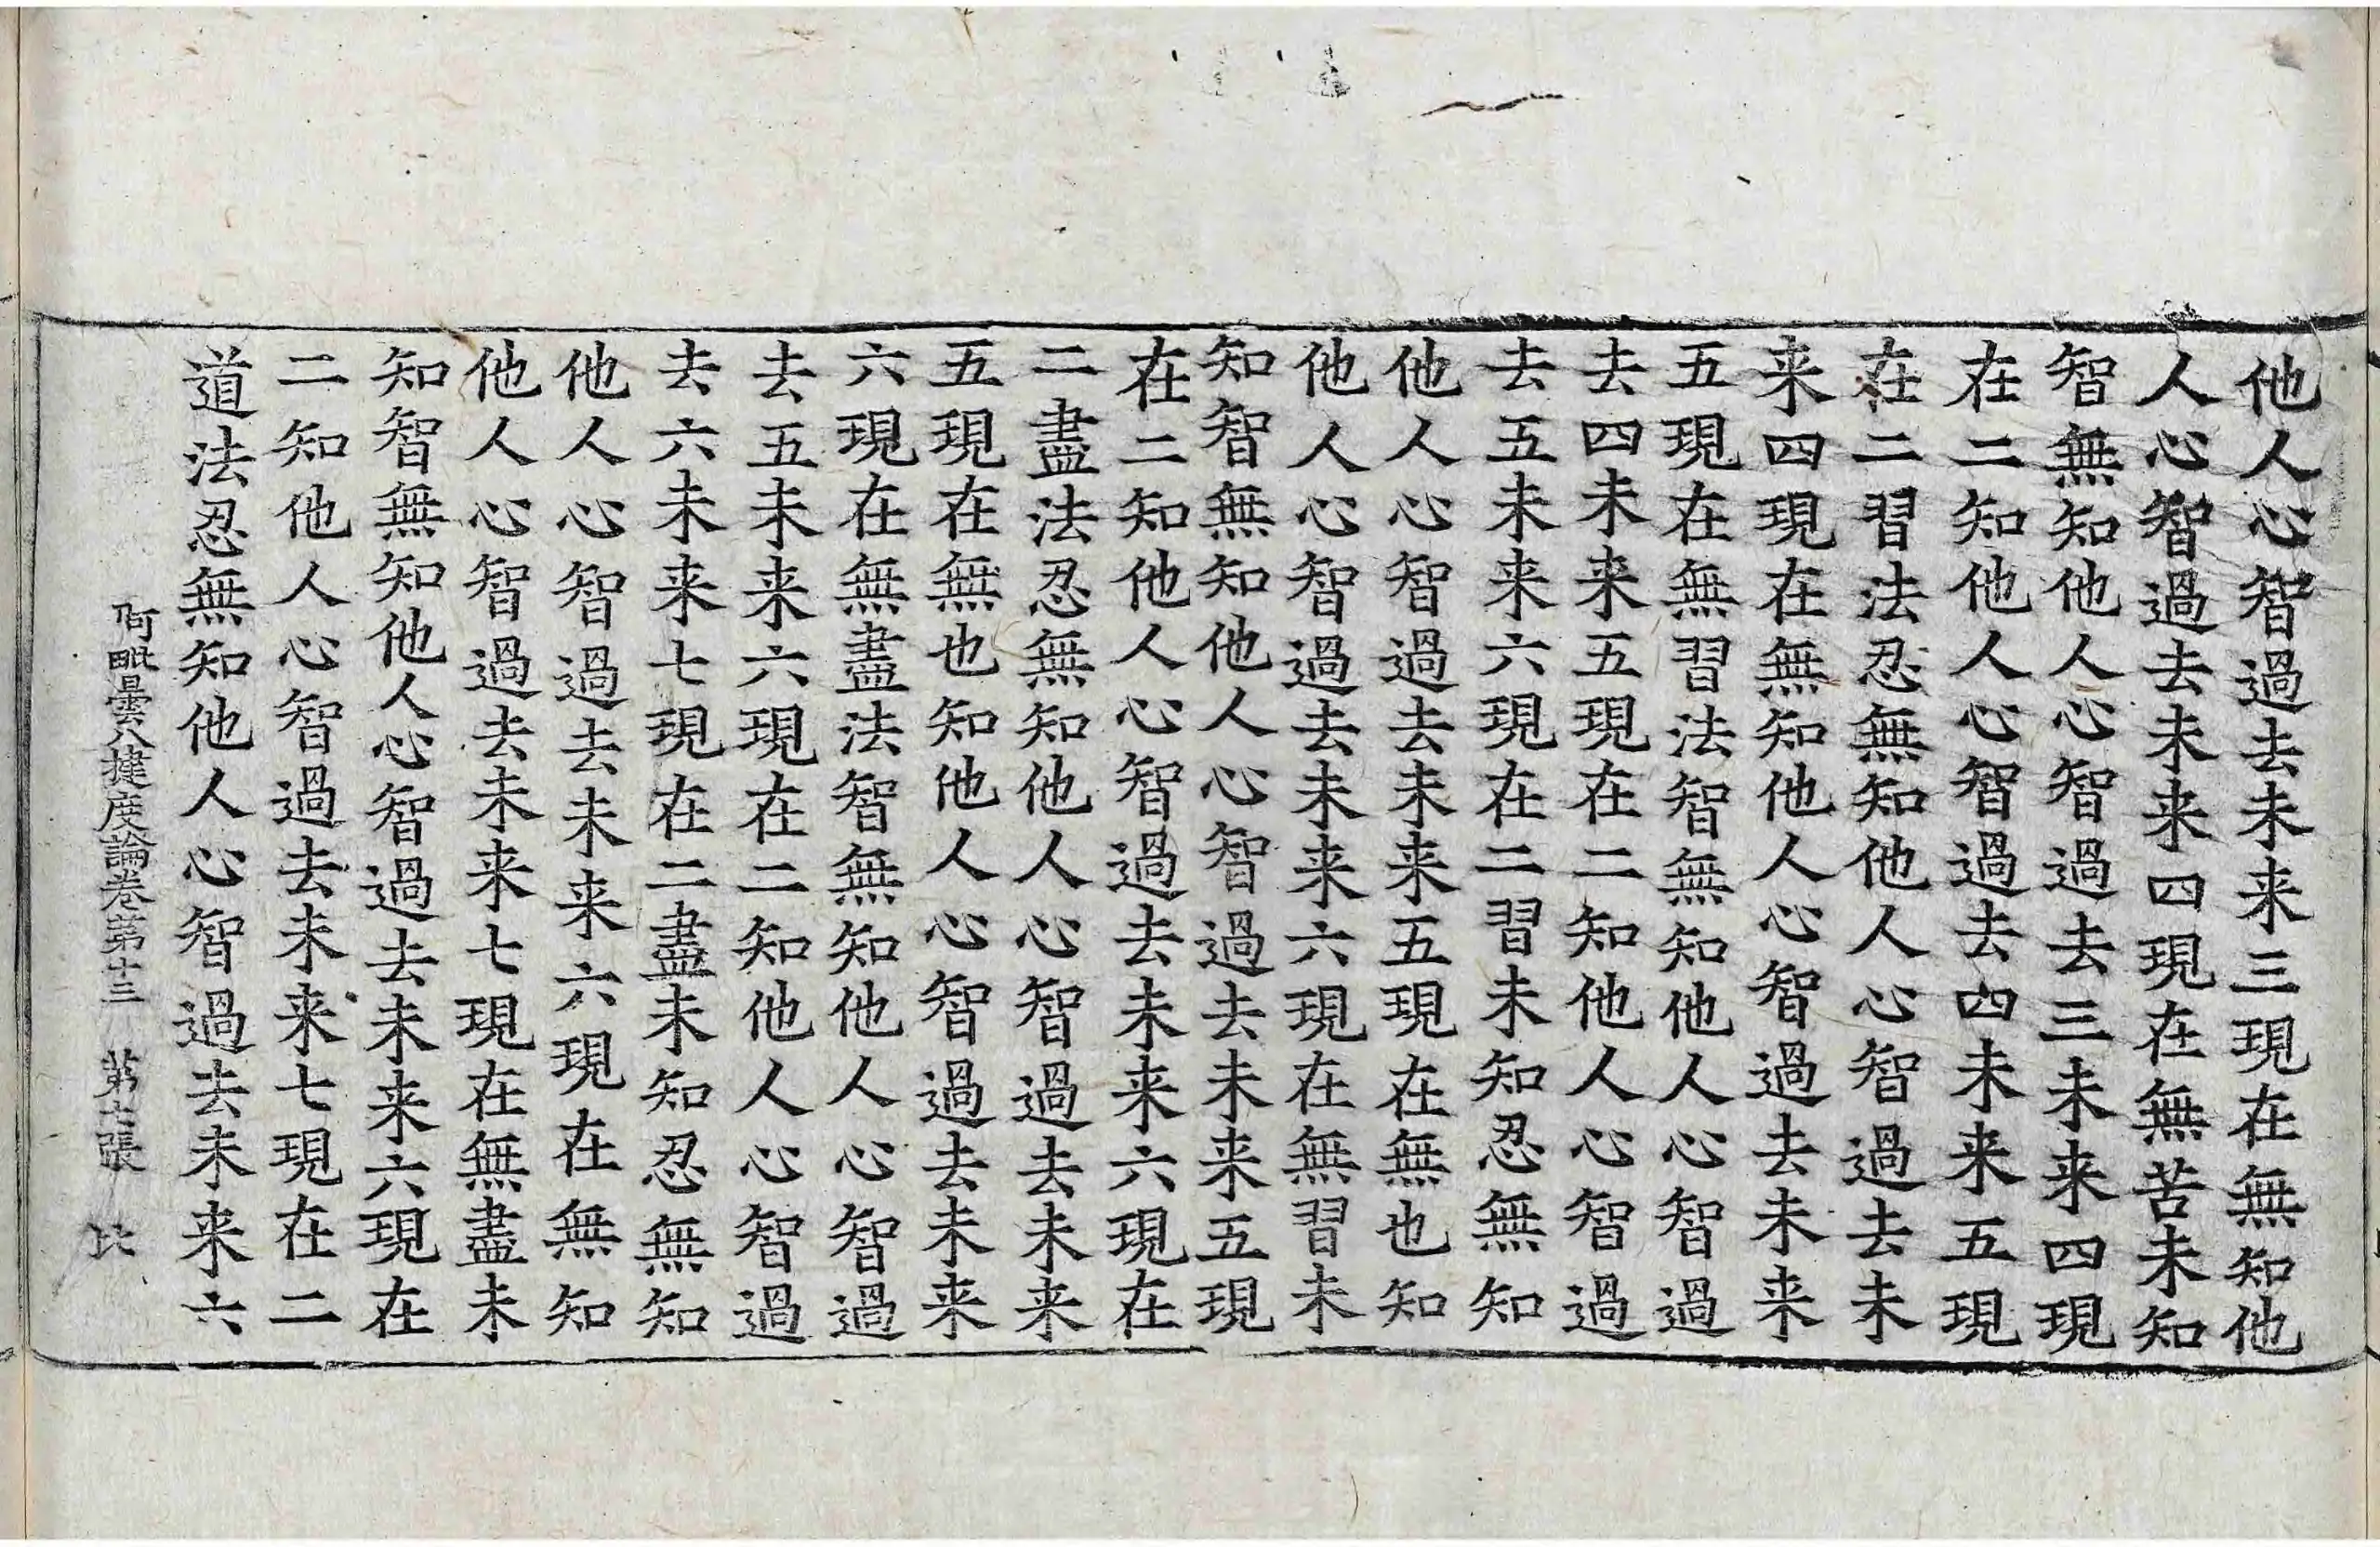 他人心智過去未来三現在無知他
人心智過去未来四現在無苦未知
智無知他人心智過去三未来四現
在二知他人心智過去四未来五現
在二習法忍無知他人心智過去未
来四現在無知他人心智過去未来
五現在無習法智無知他人心智過
去四未来五現在二知他人心智過
去五未来六現在二習未知忍無知
他人心智過去未来五現在無也知
他人心智過去未来六現在無習未
知智無知他人心智過去未来五現
在二知他人心智過去未来六現在
二盡法忍無知他人心智過去未来
五現在無也知他人心智過去未来
六現在無盡法智無知他人心智過
去五未来六現在二知他人心智過
去六未来七現在二盡未知忍無知
他人心智過去未来六現在無知
他人心智過去未来七現在無盡未
知智無知他人心智過去未来六現在
二知他人心智過去未来七現在二
道法忍無知他人心智過去未来六
阿毗曇八揵度論卷苐十三 苐七張 比